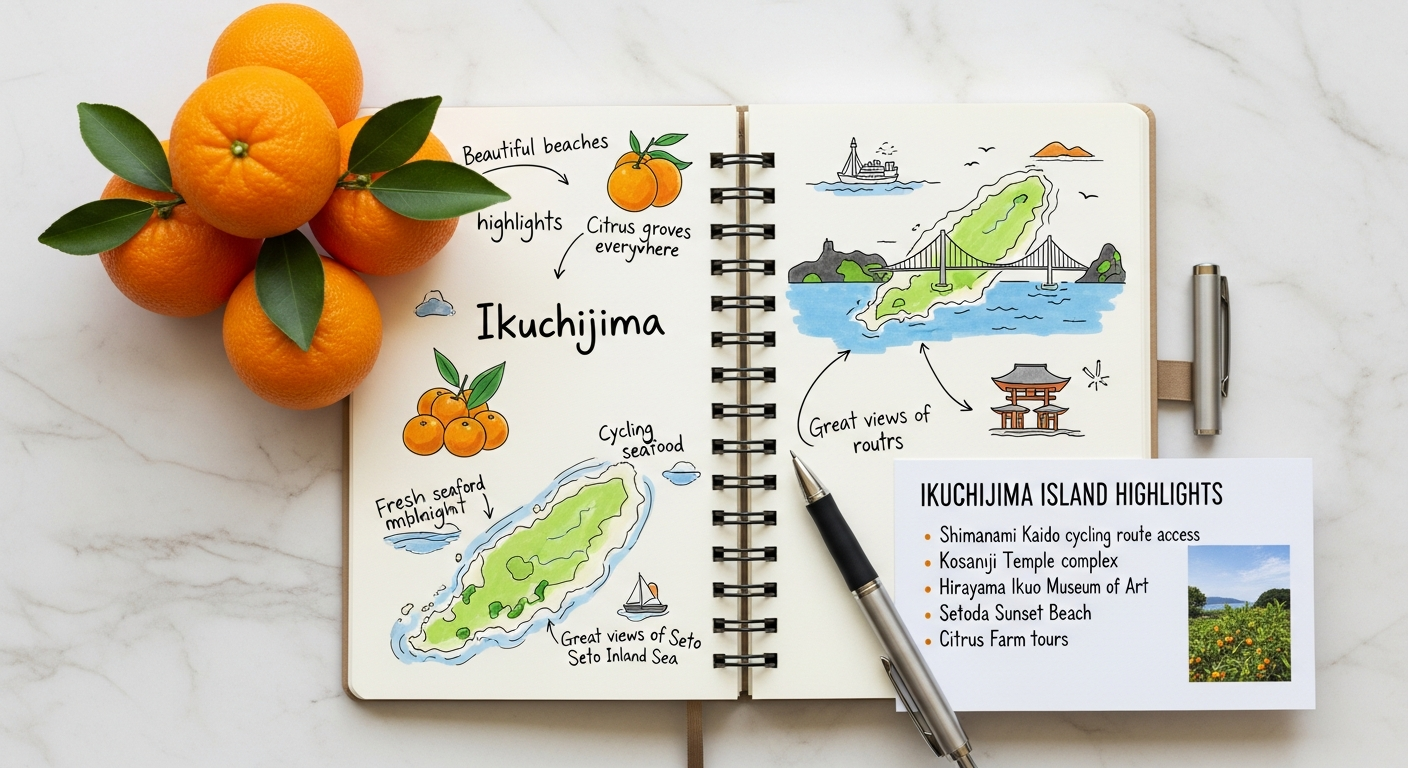 Beautiful beaches
highlights
Citrus groves
everywhere
Ikuchijima
Cycling
seafood
Fresh seaford
Great views of Seto
Seto Inland Sea
Great views of
routrs
IKUCHIJIMA ISLAND HIGHLIGHTS
• Shimanami Kaido cycling route access
• Kosanji Temple complex
• Hirayama Ikuo Museum of Art
• Setoda Sunset Beach
• Citrus Farm tours